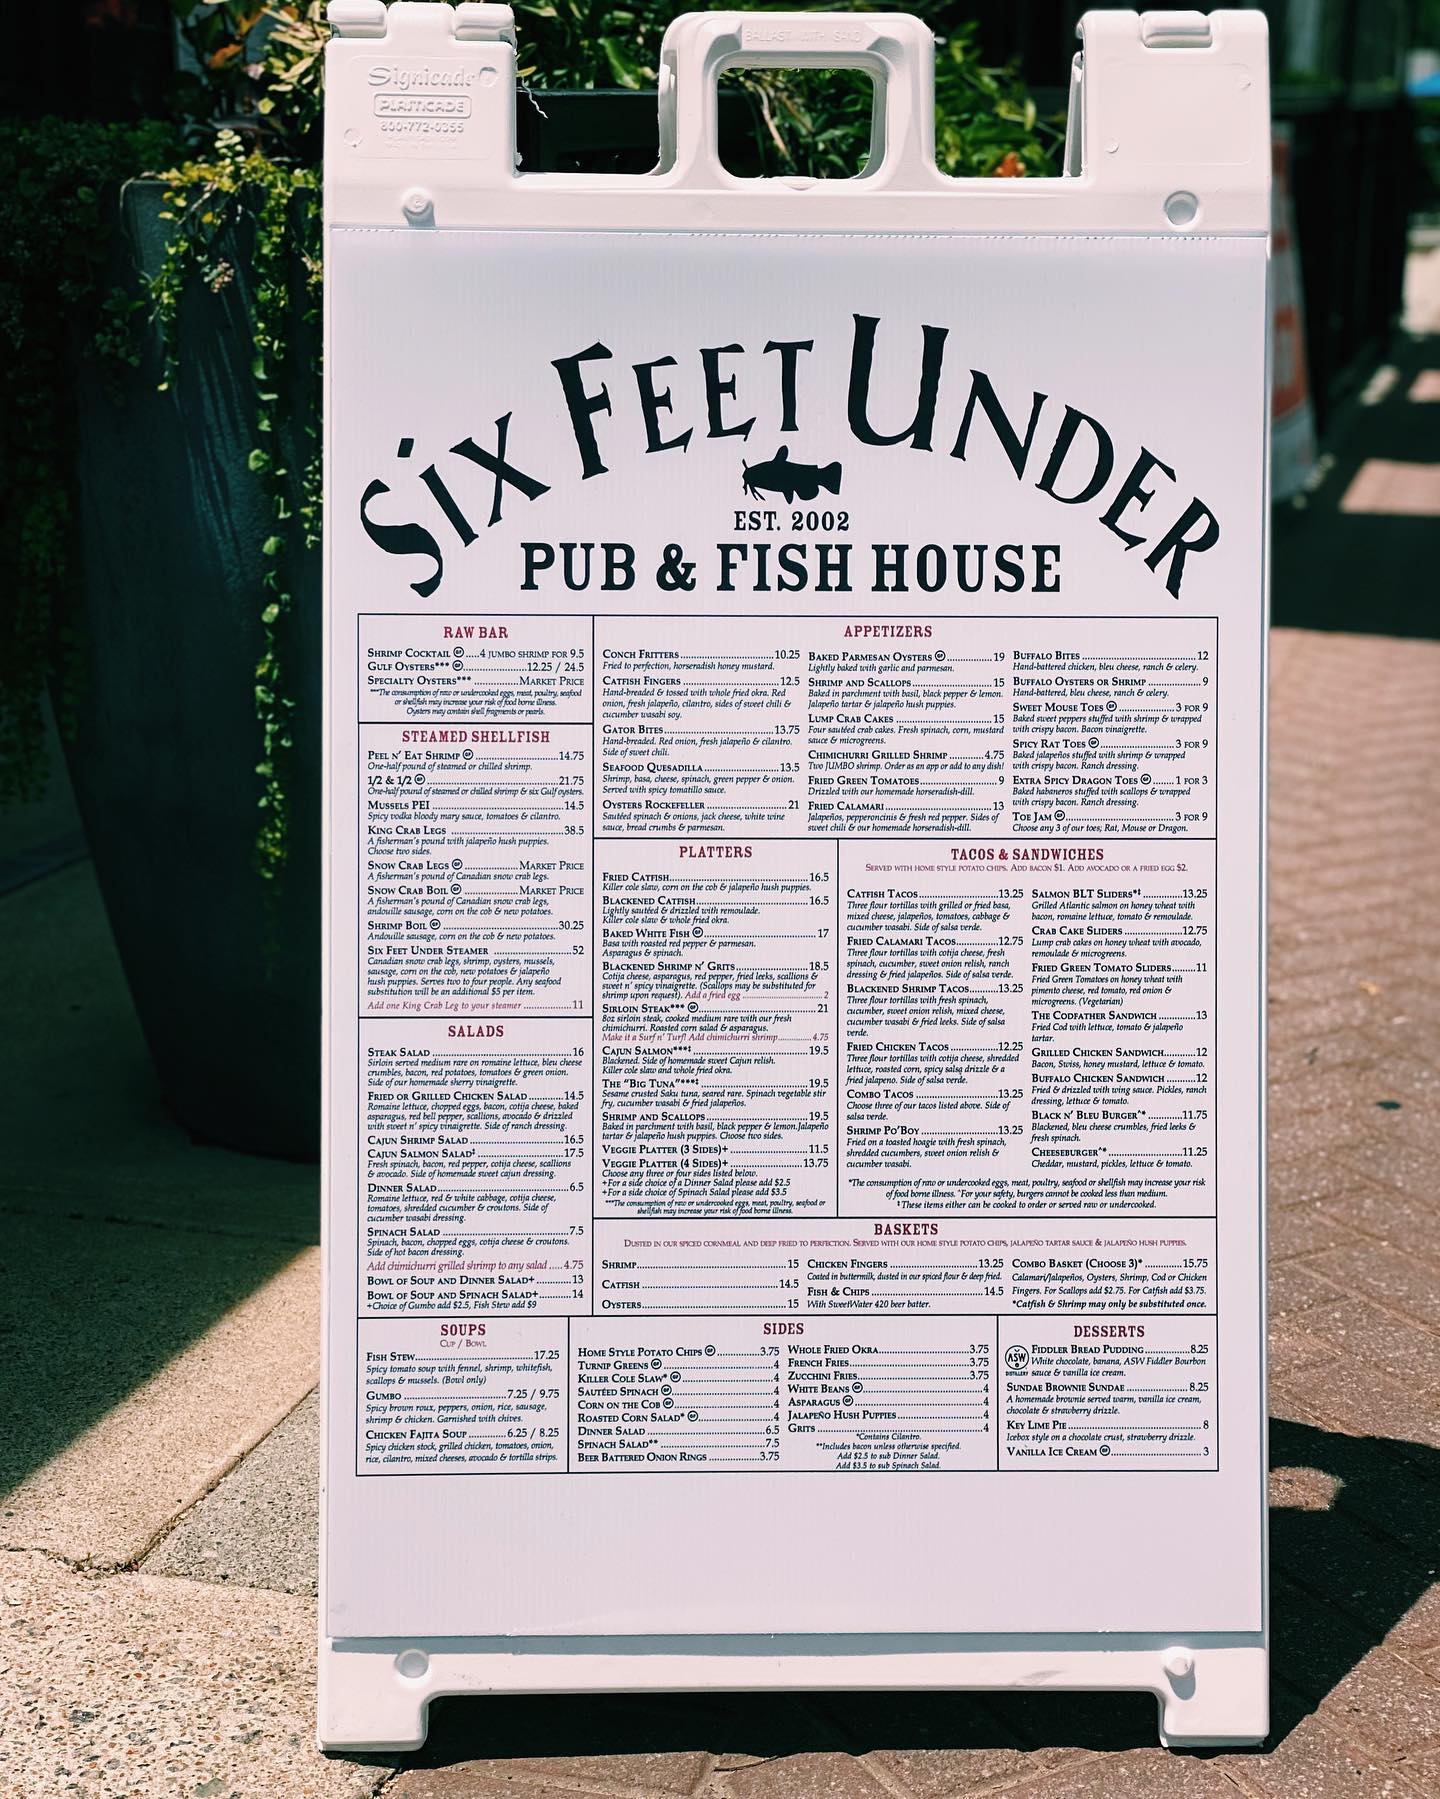 BALLAST WITH SAND
Signicade
PLASTICADE
800-772-0355
SIX FEET UNDER
EST. 2002
PUB & FISH HOUSE
RAW BAR
SHRIMP COCKTAIL GF.....4 JUMBO SHRIMP FOR 9.5
GULF OYSTERS*** GF....................12.25 / 24.5
SPECIALTY OYSTERS*** ...............MARKET PRICE
***The consumption of raw or undercooked eggs, meat, poultry, seafood
or shellfish may increase your risk of food borne illness.
Oysters may contain shell fragments or pearls.
STEAMED SHELLFISH
PEEL N' EAT SHRIMP GF..........................14.75
One-half pound of steamed or chilled shrimp.
1/2 & 1/2 GF..........................................21.75
One-half pound of steamed or chilled shrimp & six Gulf oysters.
MUSSELS PEI ..........................................14.5
Spicy vodka bloody mary sauce, tomatoes & cilantro.
KING CRAB LEGS ....................................38.5
A fisherman's pound with jalapeño hush puppies.
Choose two sides.
SNOW CRAB LEGS GF..................MARKET PRICE
A fisherman's pound of Canadian snow crab legs.
SNOW CRAB BOIL GF..................MARKET PRICE
A fisherman's pound of Canadian snow crab legs,
andouille sausage, corn on the cob & new potatoes.
SHRIMP BOIL GF....................................30.25
Andouille sausage, corn on the cob & new potatoes.
SIX FEET UNDER STEAMER ........................52
Canadian snow crab legs, shrimp, oysters, mussels,
sausage, corn on the cob, new potatoes & jalapeño
hush puppies. Serves two to four people. Any seafood
substitution will be an additional $5 per item.
Add one King Crab Leg to your steamer ...............11
SALADS
STEAK SALAD ............................................16
Sirloin served medium rare on romaine lettuce, bleu cheese
crumbles, bacon, red potatoes, tomatoes & green onion.
Side of our homemade sherry vinaigrette.
FRIED OR GRILLED CHICKEN SALAD..............14.5
Romaine lettuce, chopped eggs, bacon, cotija cheese, baked
asparagus, red bell pepper, scallions, avocado & drizzled
with sweet n' spicy vinaigrette. Side of ranch dressing.
CAJUN SHRIMP SALAD .............................16.5
CAJUN SALMON SALAD‡ ...........................17.5
Fresh spinach, bacon, red pepper, cotija cheese, scallions
& avocado. Side of homemade sweet cajun dressing.
DINNER SALAD........................................6.5
Romaine lettuce, red & white cabbage, cotija cheese,
tomatoes, shredded cucumber & croutons. Side of
cucumber wasabi dressing.
SPINACH SALAD ......................................7.5
Spinach, bacon, chopped eggs, cotija cheese & croutons.
Side of hot bacon dressing.
Add chimichurri grilled shrimp to any salad .....4.75
BOWL OF SOUP AND DINNER SALAD+...........13
BOWL OF SOUP AND SPINACH SALAD+..........14
+Choice of Gumbo add $2.5, Fish Stew add $9
APPETIZERS
CONCH FRITTERS..............................10.25
Fried to perfection, horseradish honey mustard.
CATFISH FINGERS..............................12.5
Hand-breaded & tossed with whole fried okra. Red
onion, fresh jalapeño, cilantro, sides of sweet chili &
cucumber wasabi soy.
GATOR BITES...................................13.75
Hand-breaded. Red onion, fresh jalapeño & cilantro.
Side of sweet chili.
SEAFOOD QUESADILLA .......................13.5
Shrimp, basa, cheese, spinach, green pepper & onion.
Served with spicy tomatillo sauce.
OYSTERS ROCKEFELLER ........................21
Sautéed spinach & onions, jack cheese, white wine
sauce, bread crumbs & parmesan.
BAKED PARMESAN OYSTERS GF.................19
Lightly baked with garlic and parmesan.
SHRIMP AND SCALLOPS..........................15
Baked in parchment with basil, black pepper & lemon.
Jalapeño tartar & jalapeño hush puppies.
LUMP CRAB CAKES ..............................15
Four sautéed crab cakes. Fresh spinach, corn, mustard
sauce & microgreens.
CHIMICHURRI GRILLED SHRIMP ..............4.75
Two JUMBO shrimp. Order as an app or add to any dish!
FRIED GREEN TOMATOES........................9
Drizzled with our homemade horseradish-dill.
FRIED CALAMARI ................................13
Jalapeños, pepperoncinis & fresh red pepper. Sides of
sweet chili & our homemade horseradish-dill.
BUFFALO BITES ..................................12
Hand-battered chicken, bleu cheese, ranch & celery.
BUFFALO OYSTERS OR SHRIMP ..................9
Hand-battered, bleu cheese, ranch & celery.
SWEET MOUSE TOES GF...................3 FOR 9
Baked sweet peppers stuffed with shrimp & wrapped
with crispy bacon. Bacon vinaigrette.
SPICY RAT TOES GF........................3 FOR 9
Baked jalapeños stuffed with shrimp & wrapped
with crispy bacon. Ranch dressing.
EXTRA SPICY DRAGON TOES GF.......1 FOR 3
Baked habaneros stuffed with scallops & wrapped
with crispy bacon. Ranch dressing.
TOE JAM GF.................................3 FOR 9
Choose any 3 of our toes; Rat, Mouse or Dragon.
PLATTERS
FRIED CATFISH.....................................16.5
Killer cole slaw, corn on the cob & jalapeño hush puppies.
BLACKENED CATFISH.............................16.5
Lightly sautéed & drizzled with remoulade.
Killer cole slaw & whole fried okra.
BAKED WHITE FISH GF............................17
Basa with roasted red pepper & parmesan.
Asparagus & spinach.
BLACKENED SHRIMP N' GRITS....................18.5
Cotija cheese, asparagus, red pepper, fried leeks, scallions &
sweet n' spicy vinaigrette. (Scallops may be substituted for
shrimp upon request). Add a fried egg ........................2
SIRLOIN STEAK*** GF..............................21
8oz sirloin steak, cooked medium rare with our fresh
chimichurri. Roasted corn salad & asparagus.
Make it a Surf n' Turf! Add chimichurri shrimp..............4.75
CAJUN SALMON***‡..............................19.5
Blackened. Side of homemade sweet Cajun relish.
Killer cole slaw and whole fried okra.
THE "BIG TUNA"***‡ .............................19.5
Sesame crusted Saku tuna, seared rare. Spinach vegetable stir
fry, cucumber wasabi & fried jalapeños.
SHRIMP AND SCALLOPS..........................19.5
Baked in parchment with basil, black pepper & lemon.Jalapeño
tartar & jalapeño hush puppies. Choose two sides.
VEGGIE PLATTER (3 SIDES)+ ....................11.5
VEGGIE PLATTER (4 SIDES)+ ...................13.75
Choose any three or four sides listed below.
+For a side choice of a Dinner Salad please add $2.5
+For a side choice of Spinach Salad please add $3.5
***The consumption of raw or undercooked eggs, meat, poultry, seafood or
shellfish may increase your risk of food borne illness.
TACOS & SANDWICHES
SERVED WITH HOME STYLE POTATO CHIPS. ADD BACON $1. ADD AVOCADO OR A FRIED EGG $2.
CATFISH TACOS.............................13.25
Three flour tortillas with grilled or fried basa,
mixed cheese, jalapeños, tomatoes, cabbage &
cucumber wasabi. Side of salsa verde.
FRIED CALAMARI TACOS..................12.75
Three flour tortillas with cotija cheese, fresh
spinach, cucumber, sweet onion relish, ranch
dressing & fried jalapeños. Side of salsa verde.
BLACKENED SHRIMP TACOS..............13.25
Three flour tortillas with fresh spinach,
cucumber, sweet onion relish, mixed cheese,
cucumber wasabi & fried leeks. Side of salsa
verde.
FRIED CHICKEN TACOS ...................12.25
Three flour tortillas with cotija cheese, shredded
lettuce, roasted corn, spicy salsa drizzle & a
fried jalapeno. Side of salsa verde.
COMBO TACOS .............................13.25
Choose three of our tacos listed above. Side of
salsa verde.
SHRIMP PO'BOY............................13.25
Fried on a toasted hoagie with fresh spinach,
shredded cucumbers, sweet onion relish &
cucumber wasabi.
SALMON BLT SLIDERS*‡ .................13.25
Grilled Atlantic salmon on honey wheat with
bacon, romaine lettuce, tomato & remoulade.
CRAB CAKE SLIDERS .....................12.75
Lump crab cakes on honey wheat with avocado,
remoulade & microgreens.
FRIED GREEN TOMATO SLIDERS..........11
Fried Green Tomatoes on honey wheat with
pimento cheese, red tomato, red onion &
microgreens. (Vegetarian)
THE CODFATHER SANDWICH .............13
Fried Cod with lettuce, tomato & jalapeño
tartar.
GRILLED CHICKEN SANDWICH.............12
Bacon, Swiss, honey mustard, lettuce & tomato.
BUFFALO CHICKEN SANDWICH ...........12
Fried & drizzled with wing sauce. Pickles, ranch
dressing, lettuce & tomato.
BLACK N' BLEU BURGER^* ..............11.75
Blackened, bleu cheese crumbles, fried leeks &
fresh spinach.
CHEESEBURGER^*........................11.25
Cheddar, mustard, pickles, lettuce & tomato.
*The consumption of raw or undercooked eggs, meat, poultry, seafood or shellfish may increase your risk
of food borne illness. ^For your safety, burgers cannot be cooked less than medium.
‡ These items either can be cooked to order or served raw or undercooked.
BASKETS
DUSTED IN OUR SPICED CORNMEAL AND DEEP FRIED TO PERFECTION. SERVED WITH OUR HOME STYLE POTATO CHIPS, JALAPEÑO TARTAR SAUCE & JALAPEÑO HUSH PUPPIES.
SHRIMP..........................................15
CATFISH .......................................14.5
OYSTERS........................................15
CHICKEN FINGERS...........................13.25
Coated in buttermilk, dusted in our spiced flour & deep fried.
FISH & CHIPS ................................14.5
With SweetWater 420 beer batter.
COMBO BASKET (CHOOSE 3)* ............15.75
Calamari/Jalapeños, Oysters, Shrimp, Cod or Chicken
Fingers. For Scallops add $2.75. For Catfish add $3.75.
*Catfish & Shrimp may only be substituted once.
SOUPS
CUP / BOWL
FISH STEW....................................17.25
Spicy tomato soup with fennel, shrimp, whitefish,
scallops & mussels. (Bowl only)
GUMBO ..................................7.25 / 9.75
Spicy brown roux, peppers, onion, rice, sausage,
shrimp & chicken. Garnished with chives.
CHICKEN FAJITA SOUP ...........6.25 / 8.25
Spicy chicken stock, grilled chicken, tomatoes, onion,
rice, cilantro, mixed cheeses, avocado & tortilla strips.
SIDES
HOME STYLE POTATO CHIPS GF..............3.75
TURNIP GREENS GF..............................4
KILLER COLE SLAW* GF.........................4
SAUTÉED SPINACH GF...........................4
CORN ON THE COB GF..........................4
ROASTED CORN SALAD* GF...................4
DINNER SALAD ................................6.5
SPINACH SALAD** .............................7.5
BEER BATTERED ONION RINGS .............3.75
WHOLE FRIED OKRA..........................3.75
FRENCH FRIES.................................3.75
ZUCCHINI FRIES...............................3.75
WHITE BEANS GF................................4
ASPARAGUS GF...................................4
JALAPEÑO HUSH PUPPIES......................4
GRITS .............................................4
*Contains Cilantro.
**Includes bacon unless otherwise specified.
Add $2.5 to sub Dinner Salad.
Add $3.5 to sub Spinach Salad.
DESSERTS
ASW
DISTILLERY
FIDDLER BREAD PUDDING..............8.25
White chocolate, banana, ASW Fiddler Bourbon
sauce & vanilla ice cream.
SUNDAE BROWNIE SUNDAE ..............8.25
A homemade brownie served warm, vanilla ice cream,
chocolate & strawberry drizzle.
KEY LIME PIE..................................8
Icebox style on a chocolate crust, strawberry drizzle.
VANILLA ICE CREAM GF.....................3